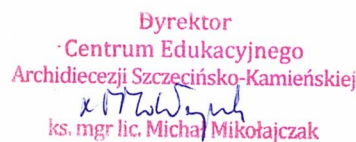 Dyrektor
Centrum Edukacyjnego
Archidiecezji Szczecińsko-Kamieńskiej
ks. mgr lic. Michał Mikołajczak